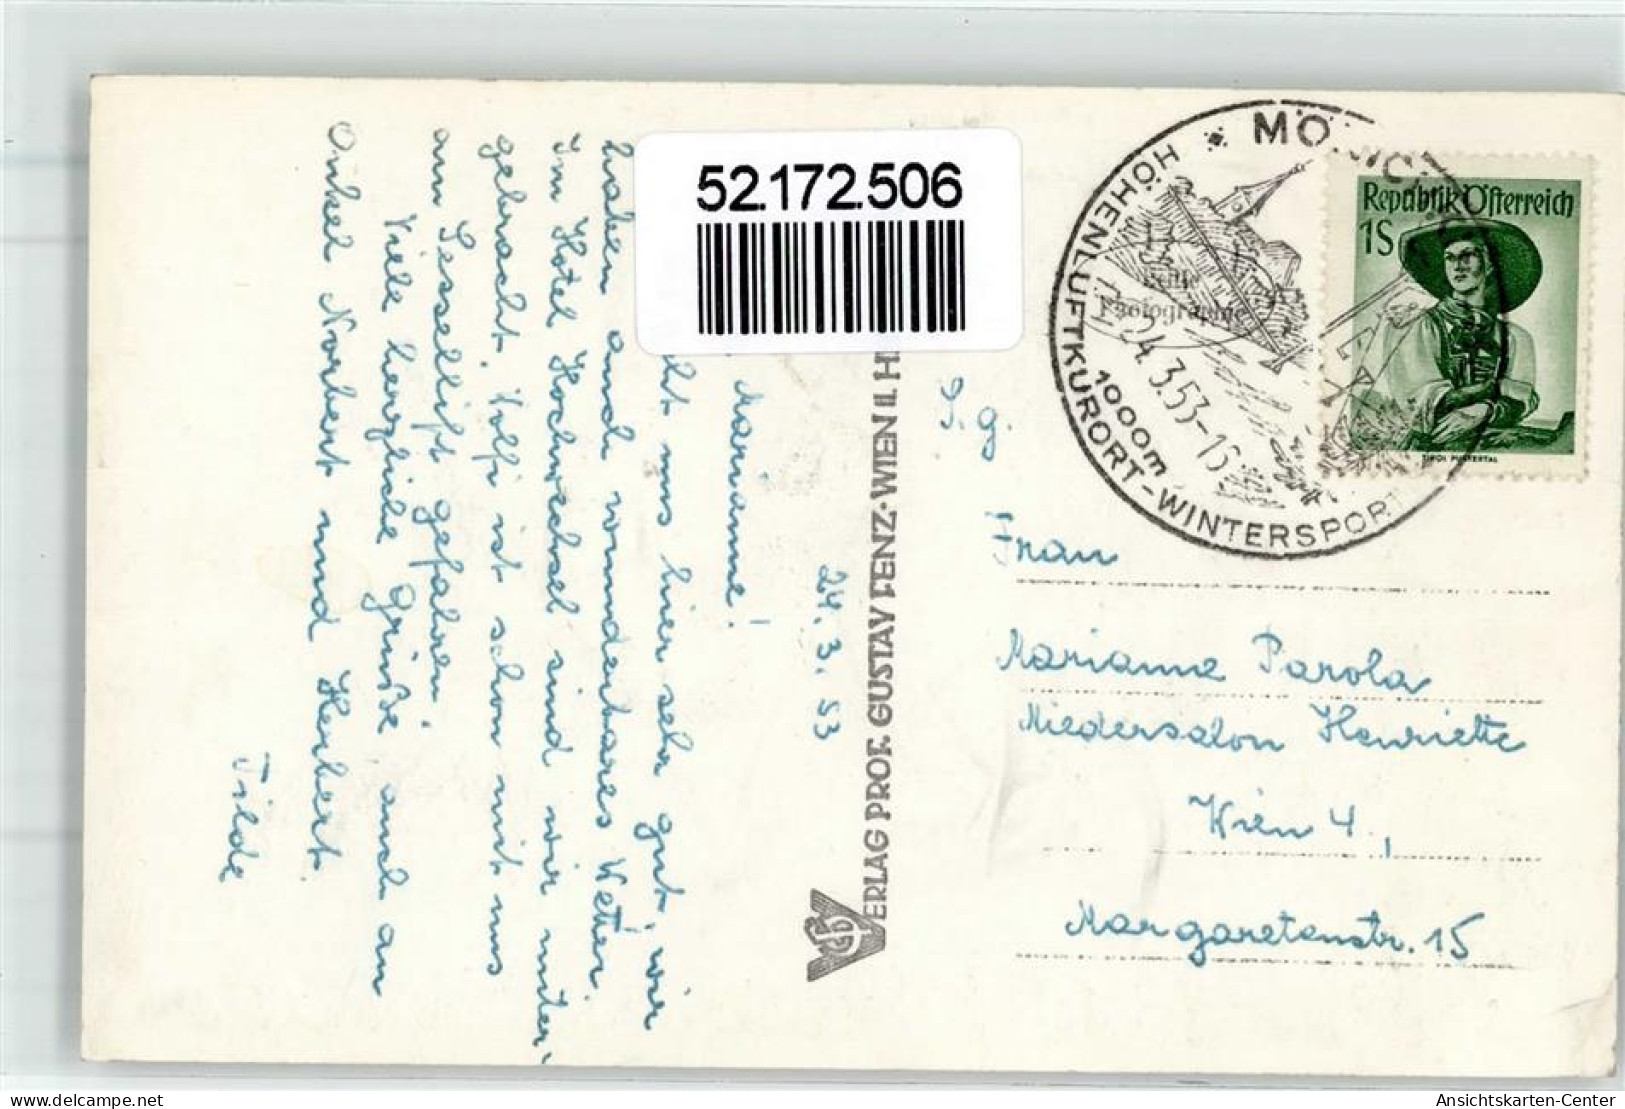 52.172.506
24. 3. 53
Marianne!
uns hier sehr gut, wir
haben auch wunderbares Wetter.
Im Hotel Hochwechsel sind wir unter-
gebracht. Wolfi ist schon mit uns
am Sessellift gefahren.
Viele herzliche Grüße auch an
Onkel Norbert und Herbert.
Tilde
VERLAG PROF. GUSTAV LENZ·WIEN II. H
S. g.
Frau
Marianne Parola
Miedersalon Henriette
Wien 4.,
Margaretenstr. 15
HÖHENLUFTKURORT-WINTERSPORT
1000m
24.3.53-15
Echte
Photographie
Republik Österreich
1S
TIROL PUSTERTAL
Ansichtskarten-Center